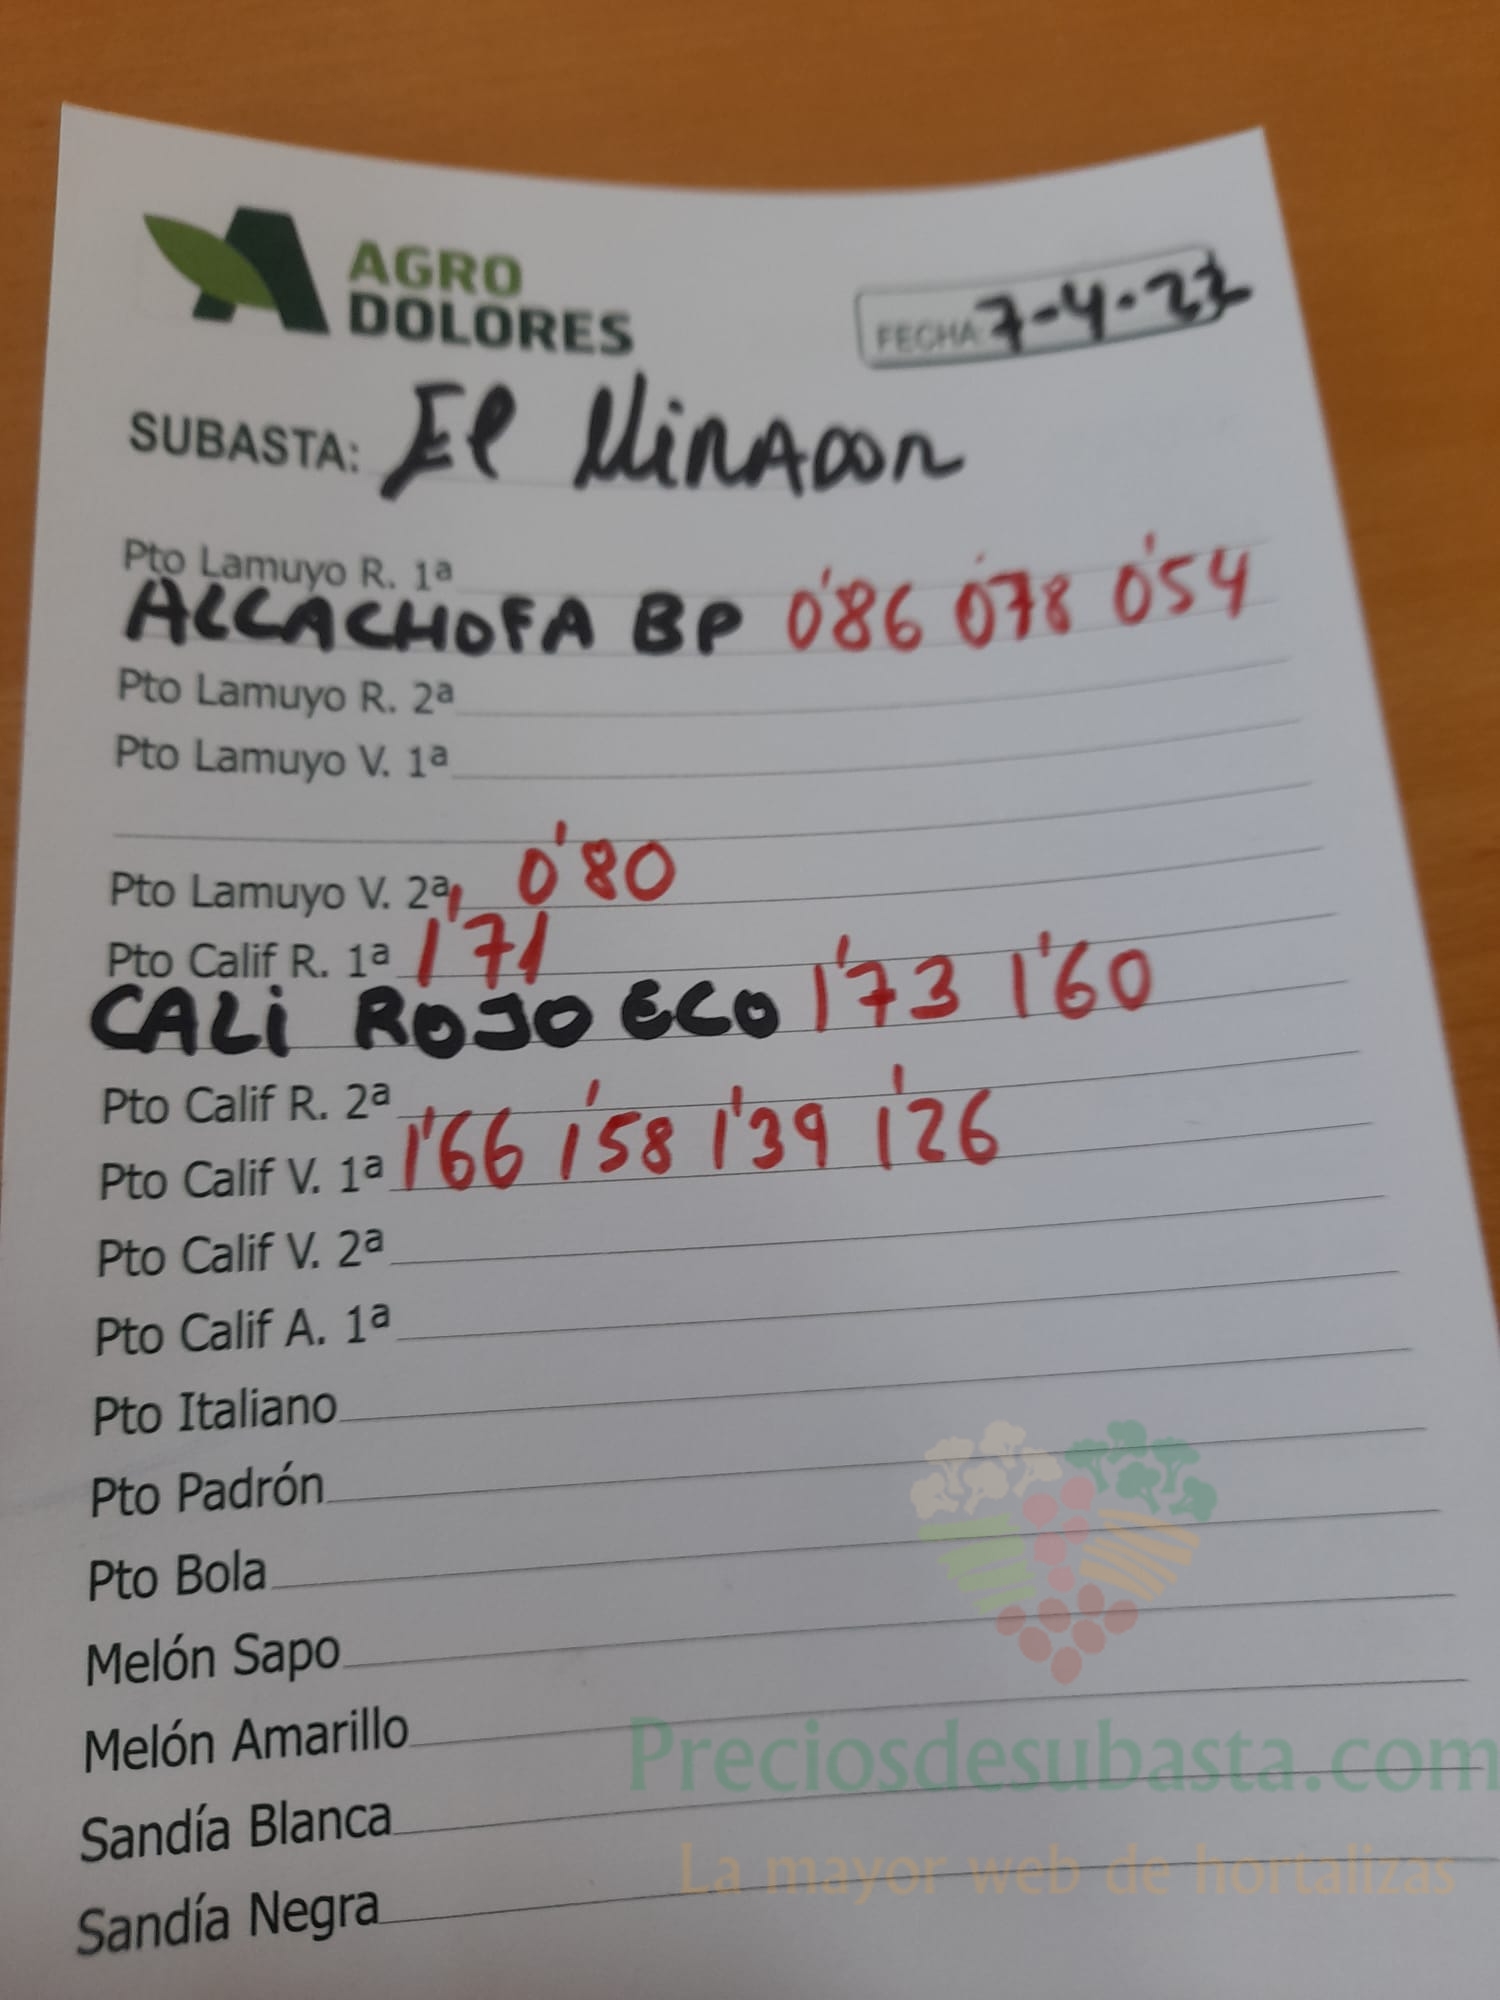 AGRO
DOLORES
FECHA: 7-4-22
SUBASTA: El MiRADOR
Pto Lamuyo R. 1ª
ALCACHOFA BP 0'86 0'78 0'54
Pto Lamuyo R. 2ª
Pto Lamuyo V. 1ª
Pto Lamuyo V. 2ª 0'80
Pto Calif R. 1ª 1'71
CALi ROJO ECO 1'73 1'60
Pto Calif R. 2ª
Pto Calif V. 1ª 1'66 1'58 1'39 1'26
Pto Calif V. 2ª
Pto Calif A. 1ª
Pto Italiano
Pto Padrón
Pto Bola
Melón Sapo
Melón Amarillo
Preciosdesubasta.com
Sandía Blanca
La mayor web de hortalizas
Sandía Negra